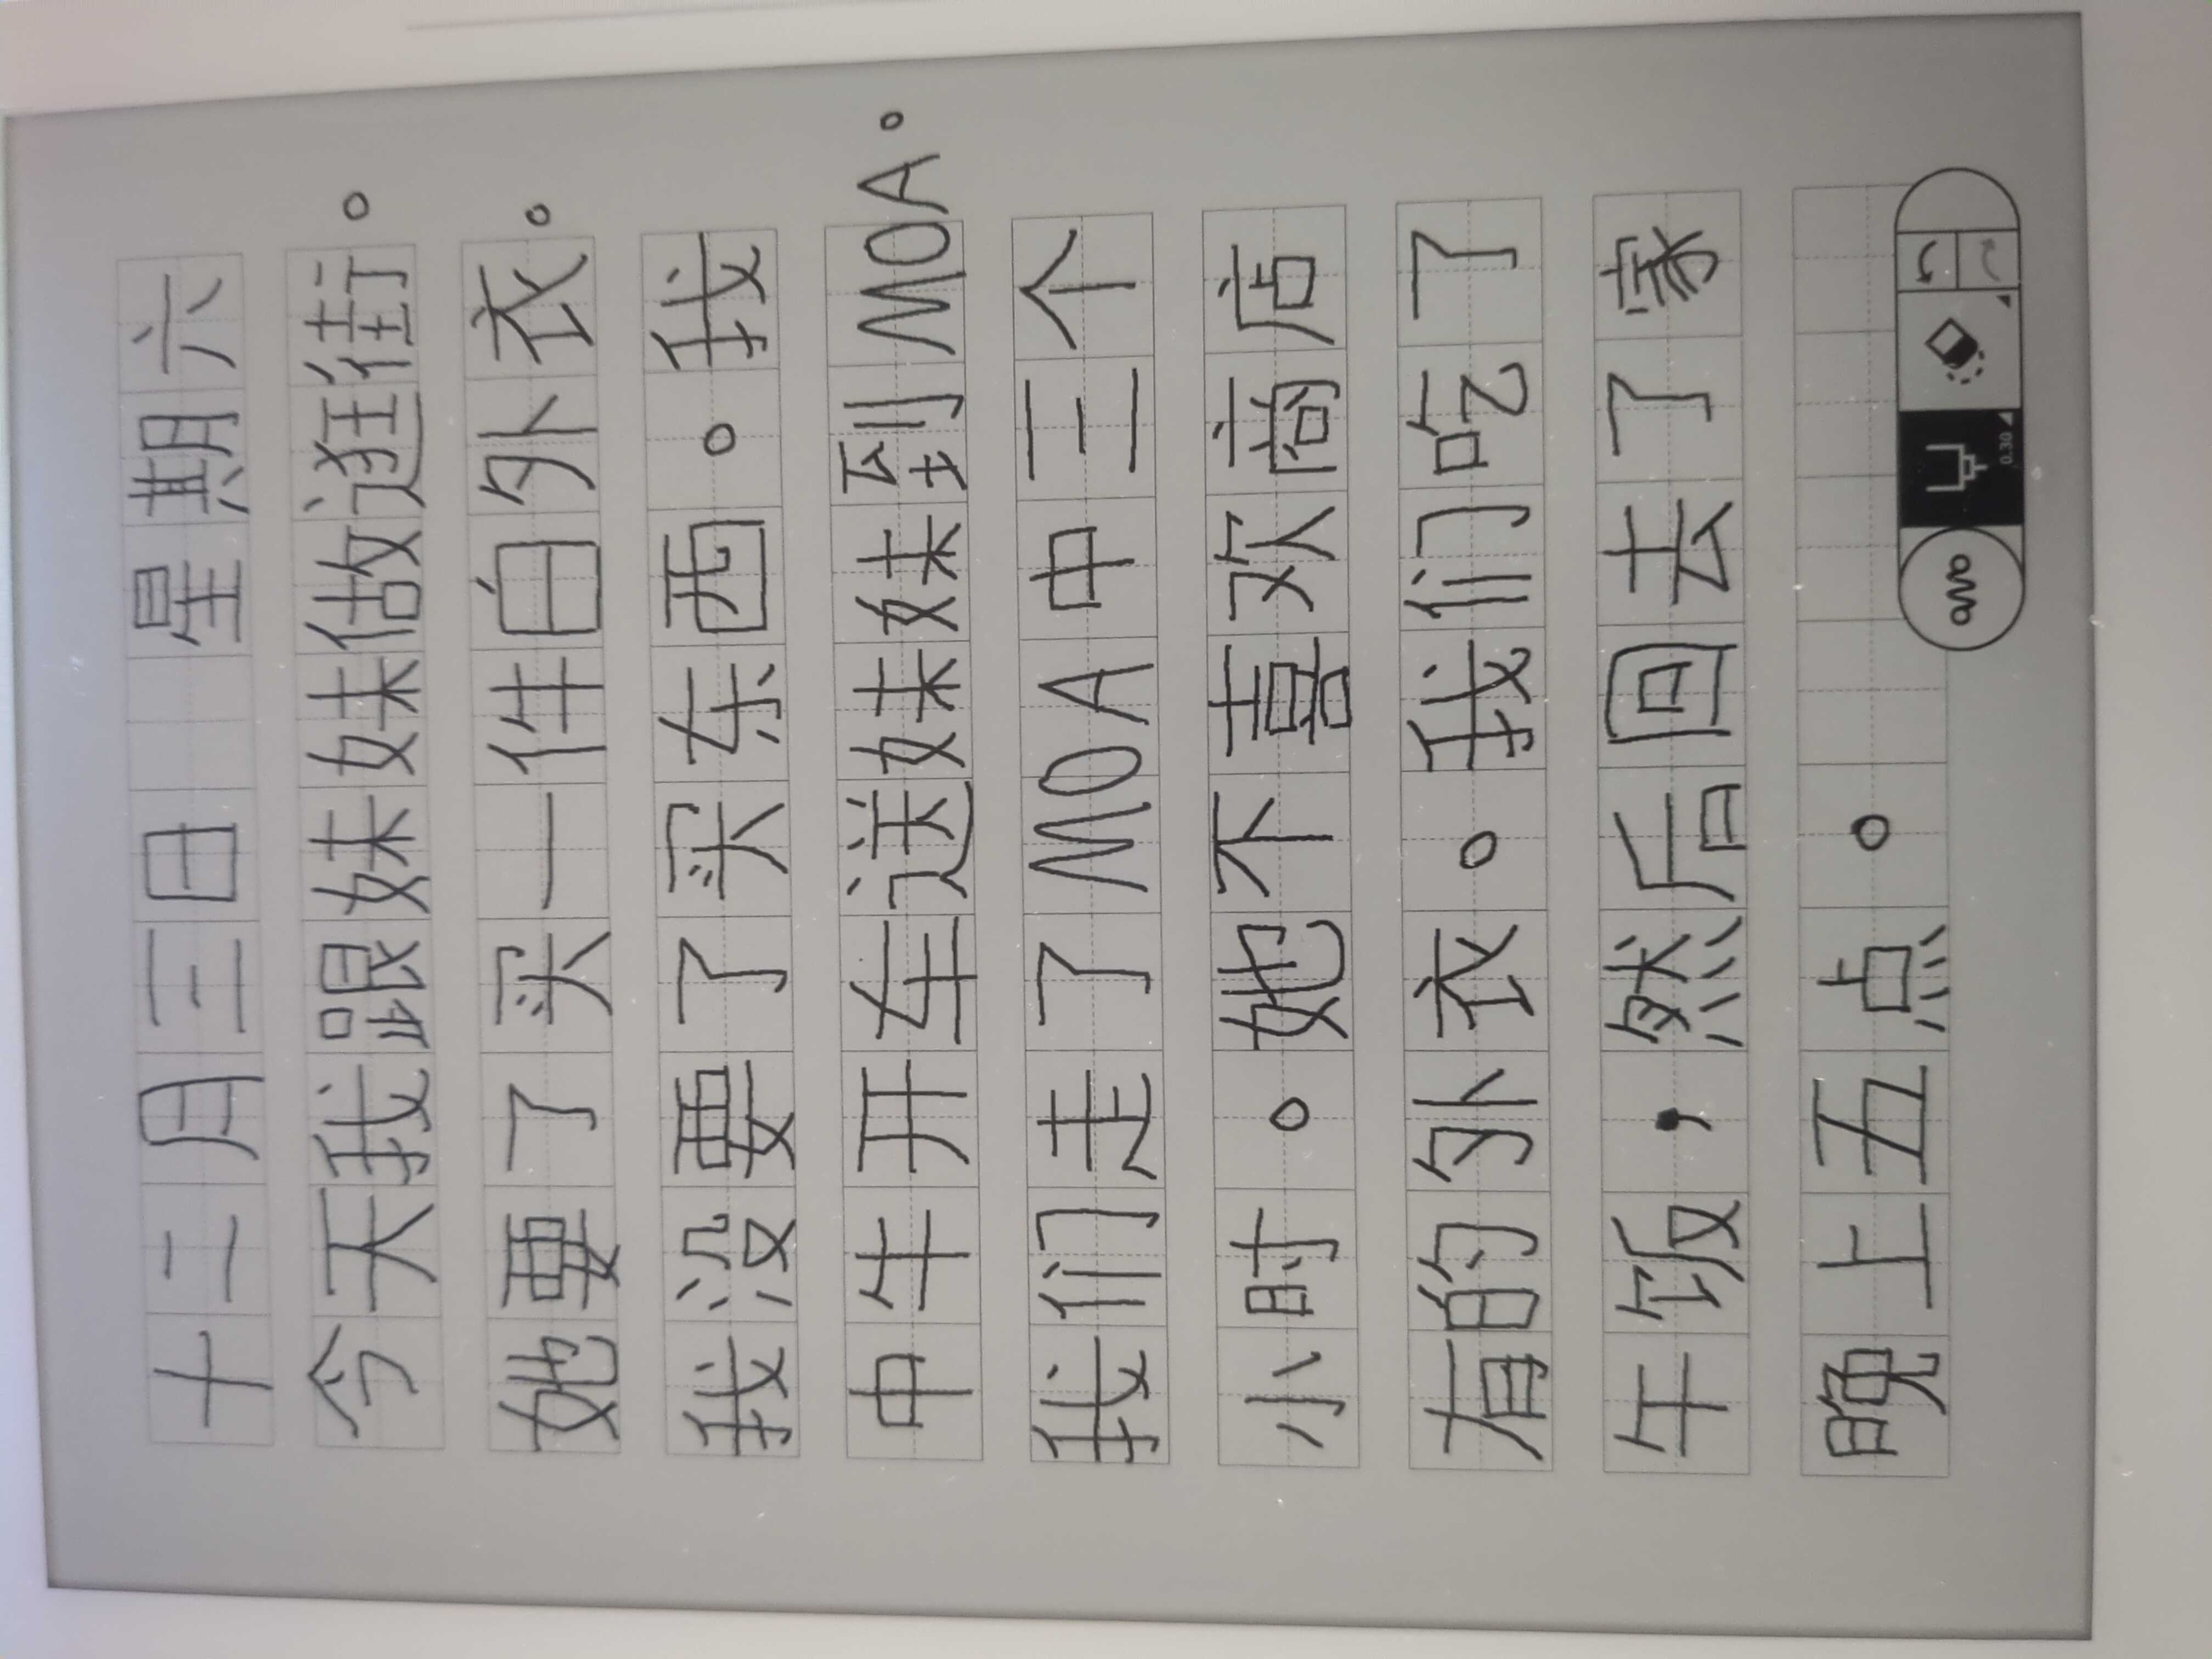 十二月三日 星期六
今天我跟妹妹做逛街。
她要了买一件白外衣。
我没要了买东西。我
中午开车送妹妹到MOA。
我们走了MOA中三个
小时。她不喜欢商店
有的外衣。我们吃了
午饭,然后回去了家
晚上五点。
0.30